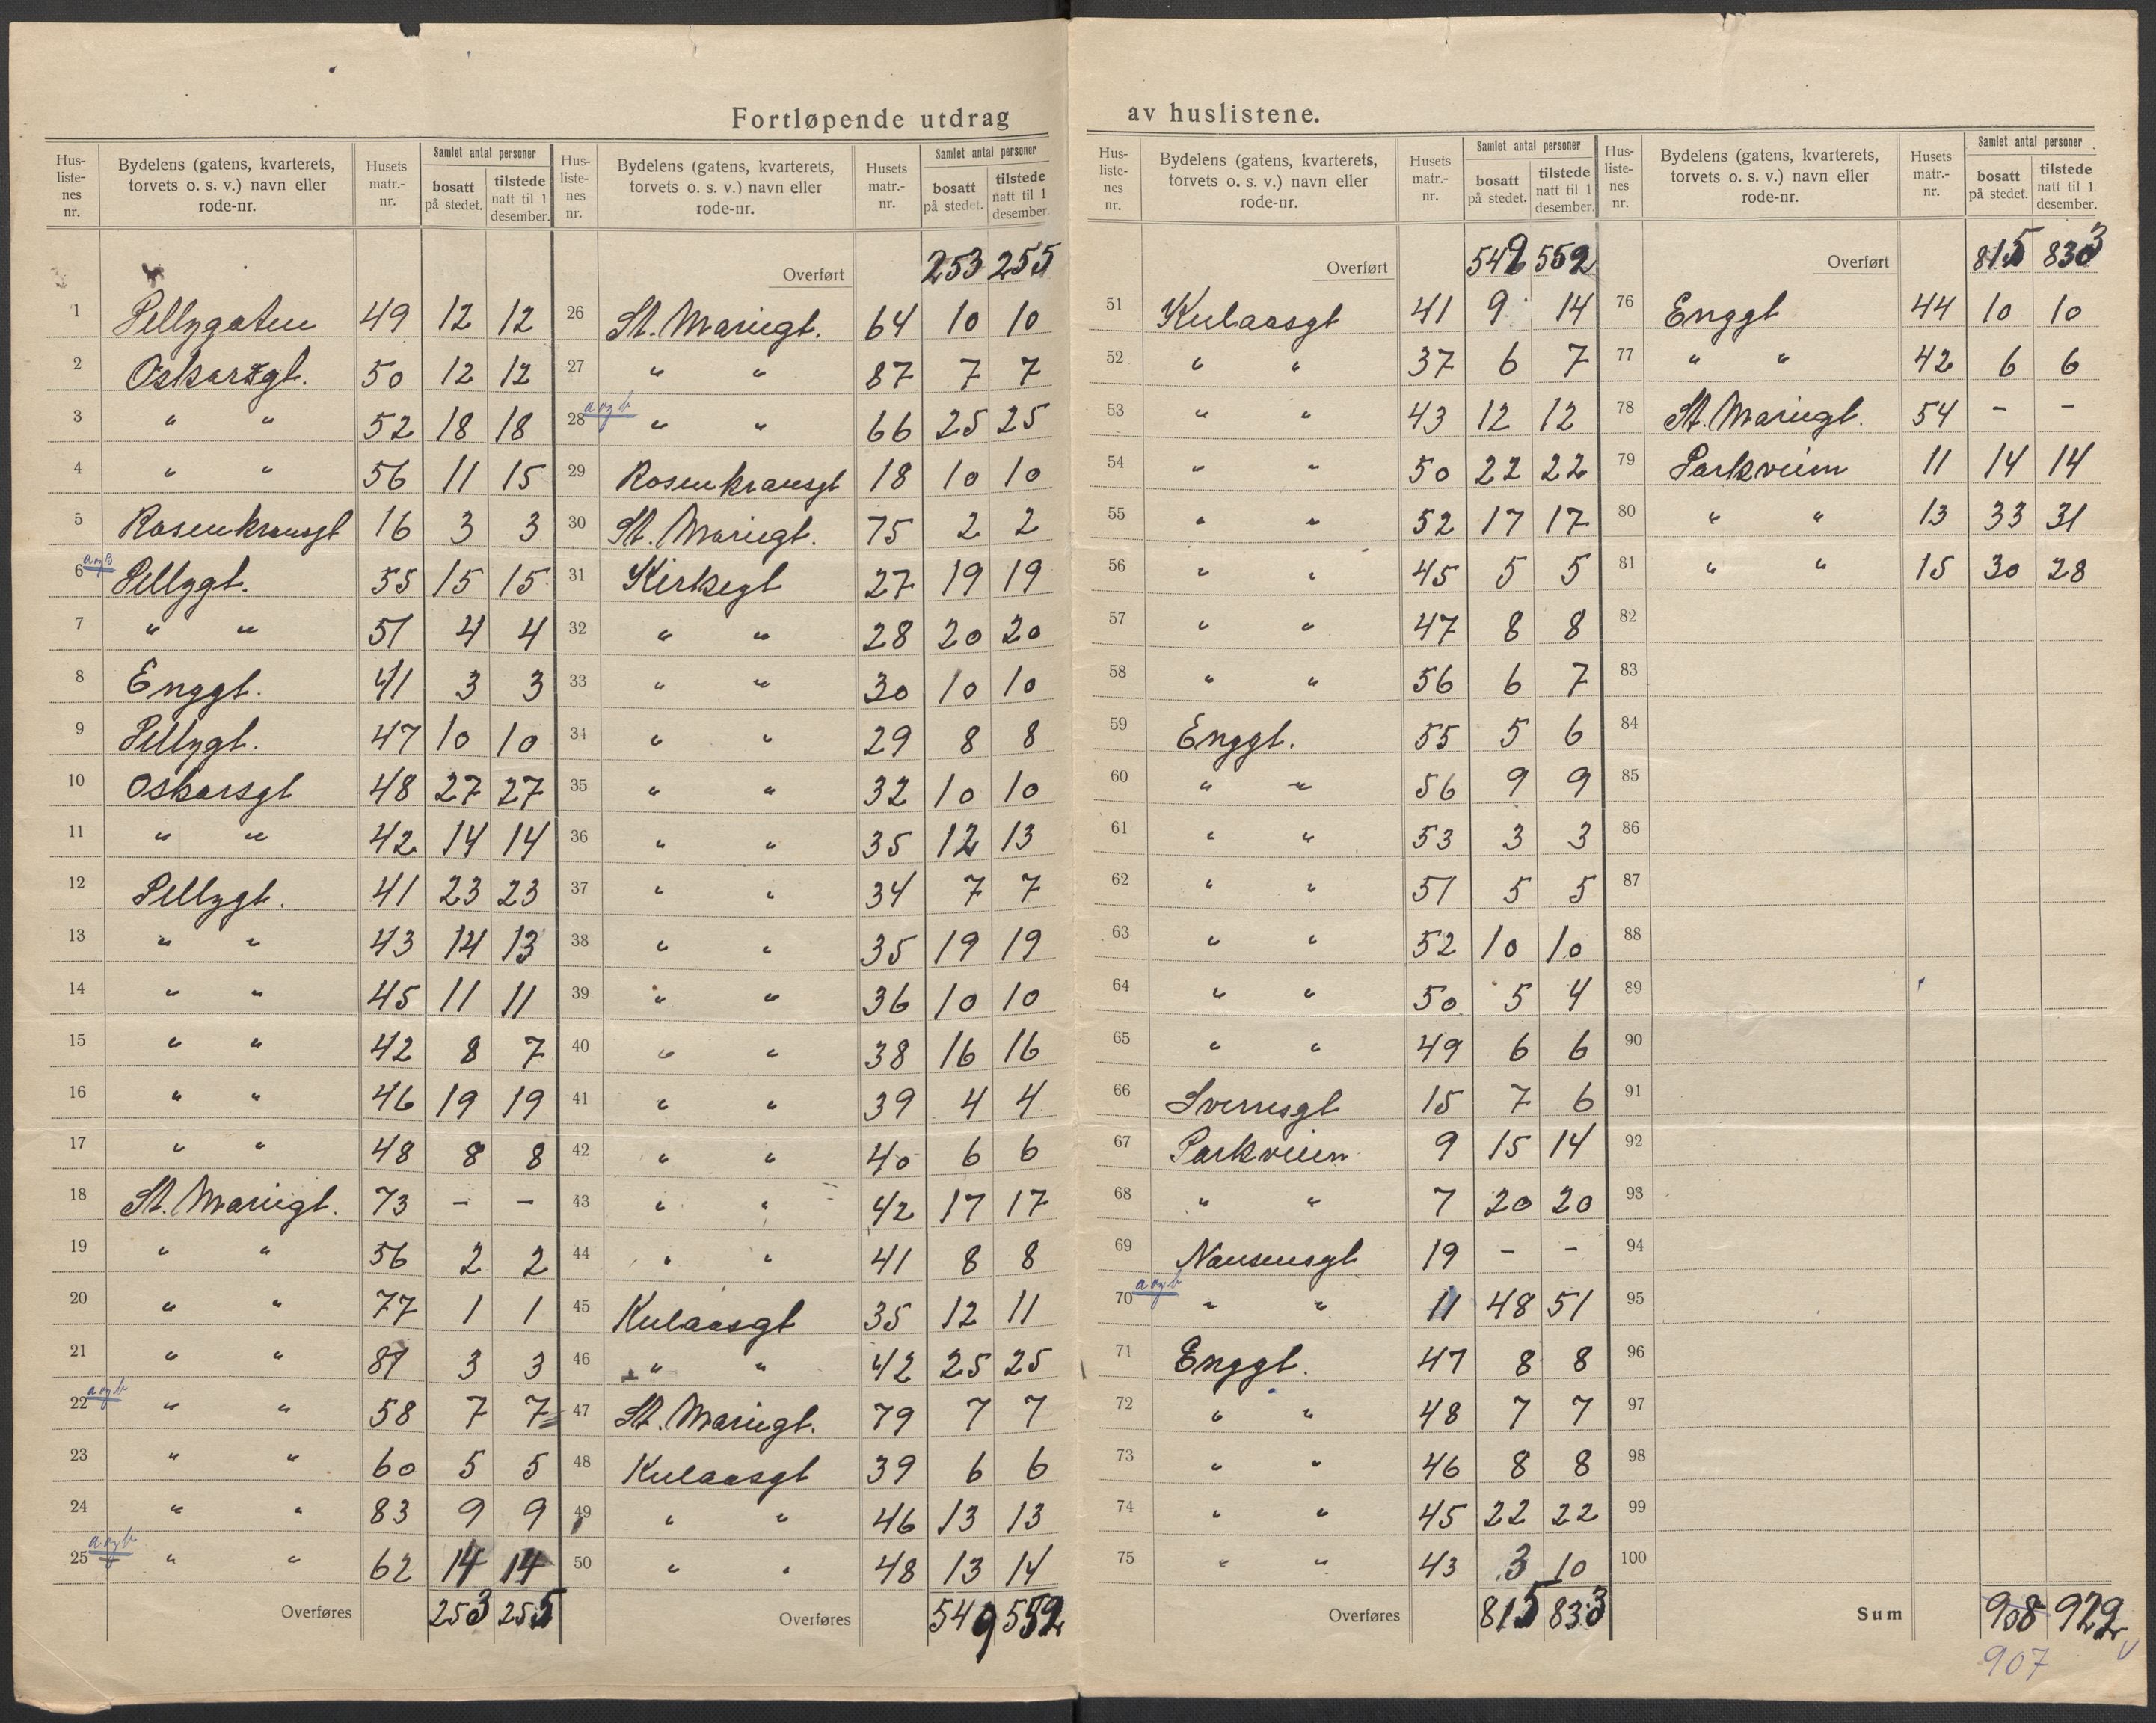 Fortløpende utdrag av huslistene.
Hus-listenes nr. Bydelens (gatens, kvarterets, torvets o. s. v.) navn eller rode-nr. Husets matr.-nr. Samlet antal personer bosatt på stedet. tilstede natt til 1 desember.
1 Pellygaten 49 12 12
2 Oskarsgt. 50 12 12
3 " " 52 18 18
4 " " 56 11 15
5 Rosenkransgt 16 3 3
6 a og B Pellygt. 55 15 15
7 " " 51 4 4
8 Enggt. 41 3 3
9 Pellygt. 47 10 10
10 Oskarsgt 48 27 27
11 " " 42 14 14
12 Pellygt. 41 23 23
13 " " 43 14 13
14 " " 45 11 11
15 " " 42 8 7
16 " " 46 19 19
17 " " 48 8 8
18 St. Mariegt. 73 - -
19 " " 56 2 2
20 " " 77 1 1
21 " " 81 3 3
22 a og b " " 58 7 7
23 " " 60 5 5
24 " " 83 9 9
25 a og b " " 62 14 14
Overføres 253 255
Hus-listenes nr. Bydelens (gatens, kvarterets, torvets o. s. v.) navn eller rode-nr. Husets matr.-nr. Samlet antal personer bosatt på stedet. tilstede natt til 1 desember.
Overført 253 255
26 St. Mariegt. 64 10 10
27 " " 87 7 7
28 a og b " " 66 25 25
29 Rosenkransgt 18 10 10
30 St. Mariegt. 75 2 2
31 Kirkegt 27 19 19
32 " " 28 20 20
33 " " 30 10 10
34 " " 29 8 8
35 " " 32 10 10
36 " " 35 12 13
37 " " 34 7 7
38 " " 35 19 19
39 " " 36 10 10
40 " " 38 16 16
41 " " 39 4 4
42 " " 40 6 6
43 " " 42 17 17
44 " " 41 8 8
45 Kulaasgt 35 12 11
46 " " 42 25 25
47 St. Mariegt. 79 7 7
48 Kulaasgt 39 6 6
49 " " 46 13 13
50 " " 48 13 14
Overføres 549 559
Hus-listenes nr. Bydelens (gatens, kvarterets, torvets o. s. v.) navn eller rode-nr. Husets matr.-nr. Samlet antal personer bosatt på stedet. tilstede natt til 1 desember.
Overført 549 559
51 Kulaasgt 41 9 14
52 " " 37 6 7
53 " " 43 12 12
54 " " 50 22 22
55 " " 52 17 17
56 " " 45 5 5
57 " " 47 8 8
58 " " 56 6 7
59 Enggt. 55 5 6
60 " " 56 9 9
61 " " 53 3 3
62 " " 51 5 5
63 " " 52 10 10
64 " " 50 5 4
65 " " 49 6 6
66 Sverresgt 15 7 6
67 Parkveien 9 15 14
68 " " 7 20 20
69 Nansensgt 19 - -
70 a og b " " 11 48 51
71 Enggt. 47 8 8
72 " " 48 7 7
73 " " 46 8 8
74 " " 45 22 22
75 " " 43 3 10
Overføres 815 833
Hus-listenes nr. Bydelens (gatens, kvarterets, torvets o. s. v.) navn eller rode-nr. Husets matr.-nr. Samlet antal personer bosatt på stedet. tilstede natt til 1 desember.
Overført 815 833
76 Enggt 44 10 10
77 " " 42 6 6
78 St. Mariegt. 54 - -
79 Parkveien 11 14 14
80 " " 13 33 31
81 " " 15 30 28
82
83
84
85
86
87
88
89
90
91
92
93
94
95
96
97
98
99
100
Sum 908 922
907